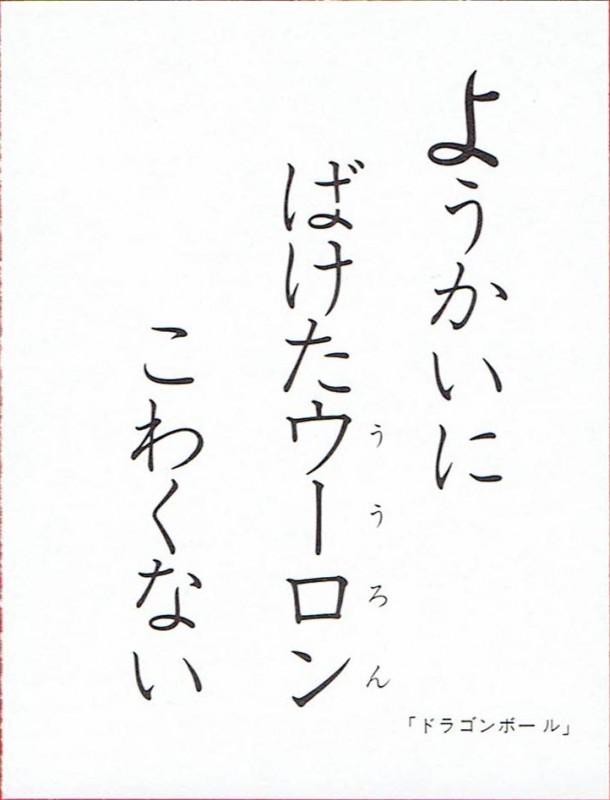 ようかいに
ばけたウーロン
ううろん
こわくない
「ドラゴンボール」